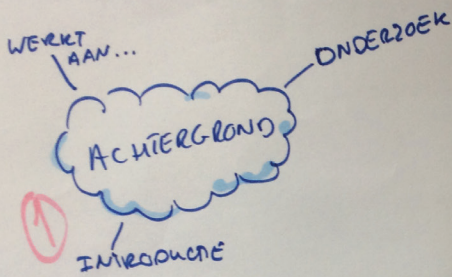 WERKT
AAN...
ONDERZOEK
ACHTERGROND
1
INTRODUCTIE